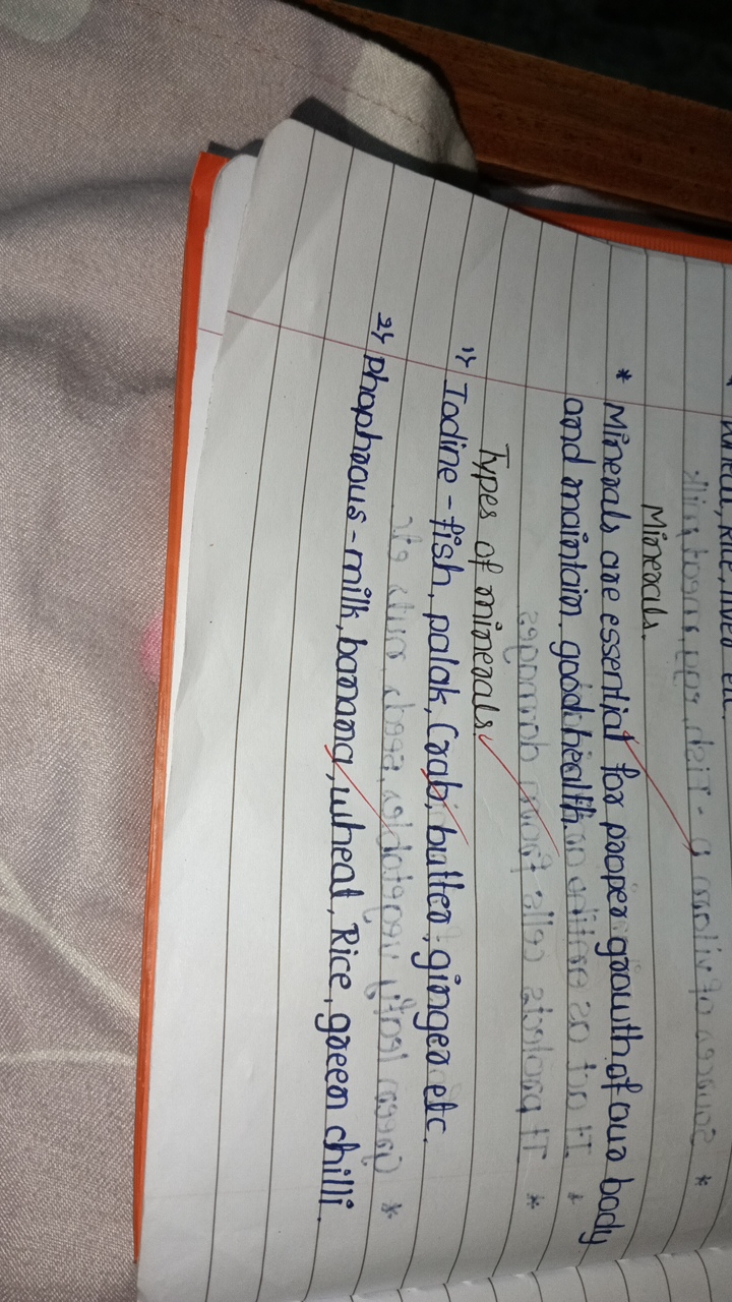 wheat, Rice, liver etc.
Minerals.
* Minerals are essential for proper growth of our body
and maintain good health.
Types of minerals.
1) Iodine - fish, palak, Crab, butter, ginger etc.
2) Phophrous - milk, banana, wheat, Rice, green chilli.